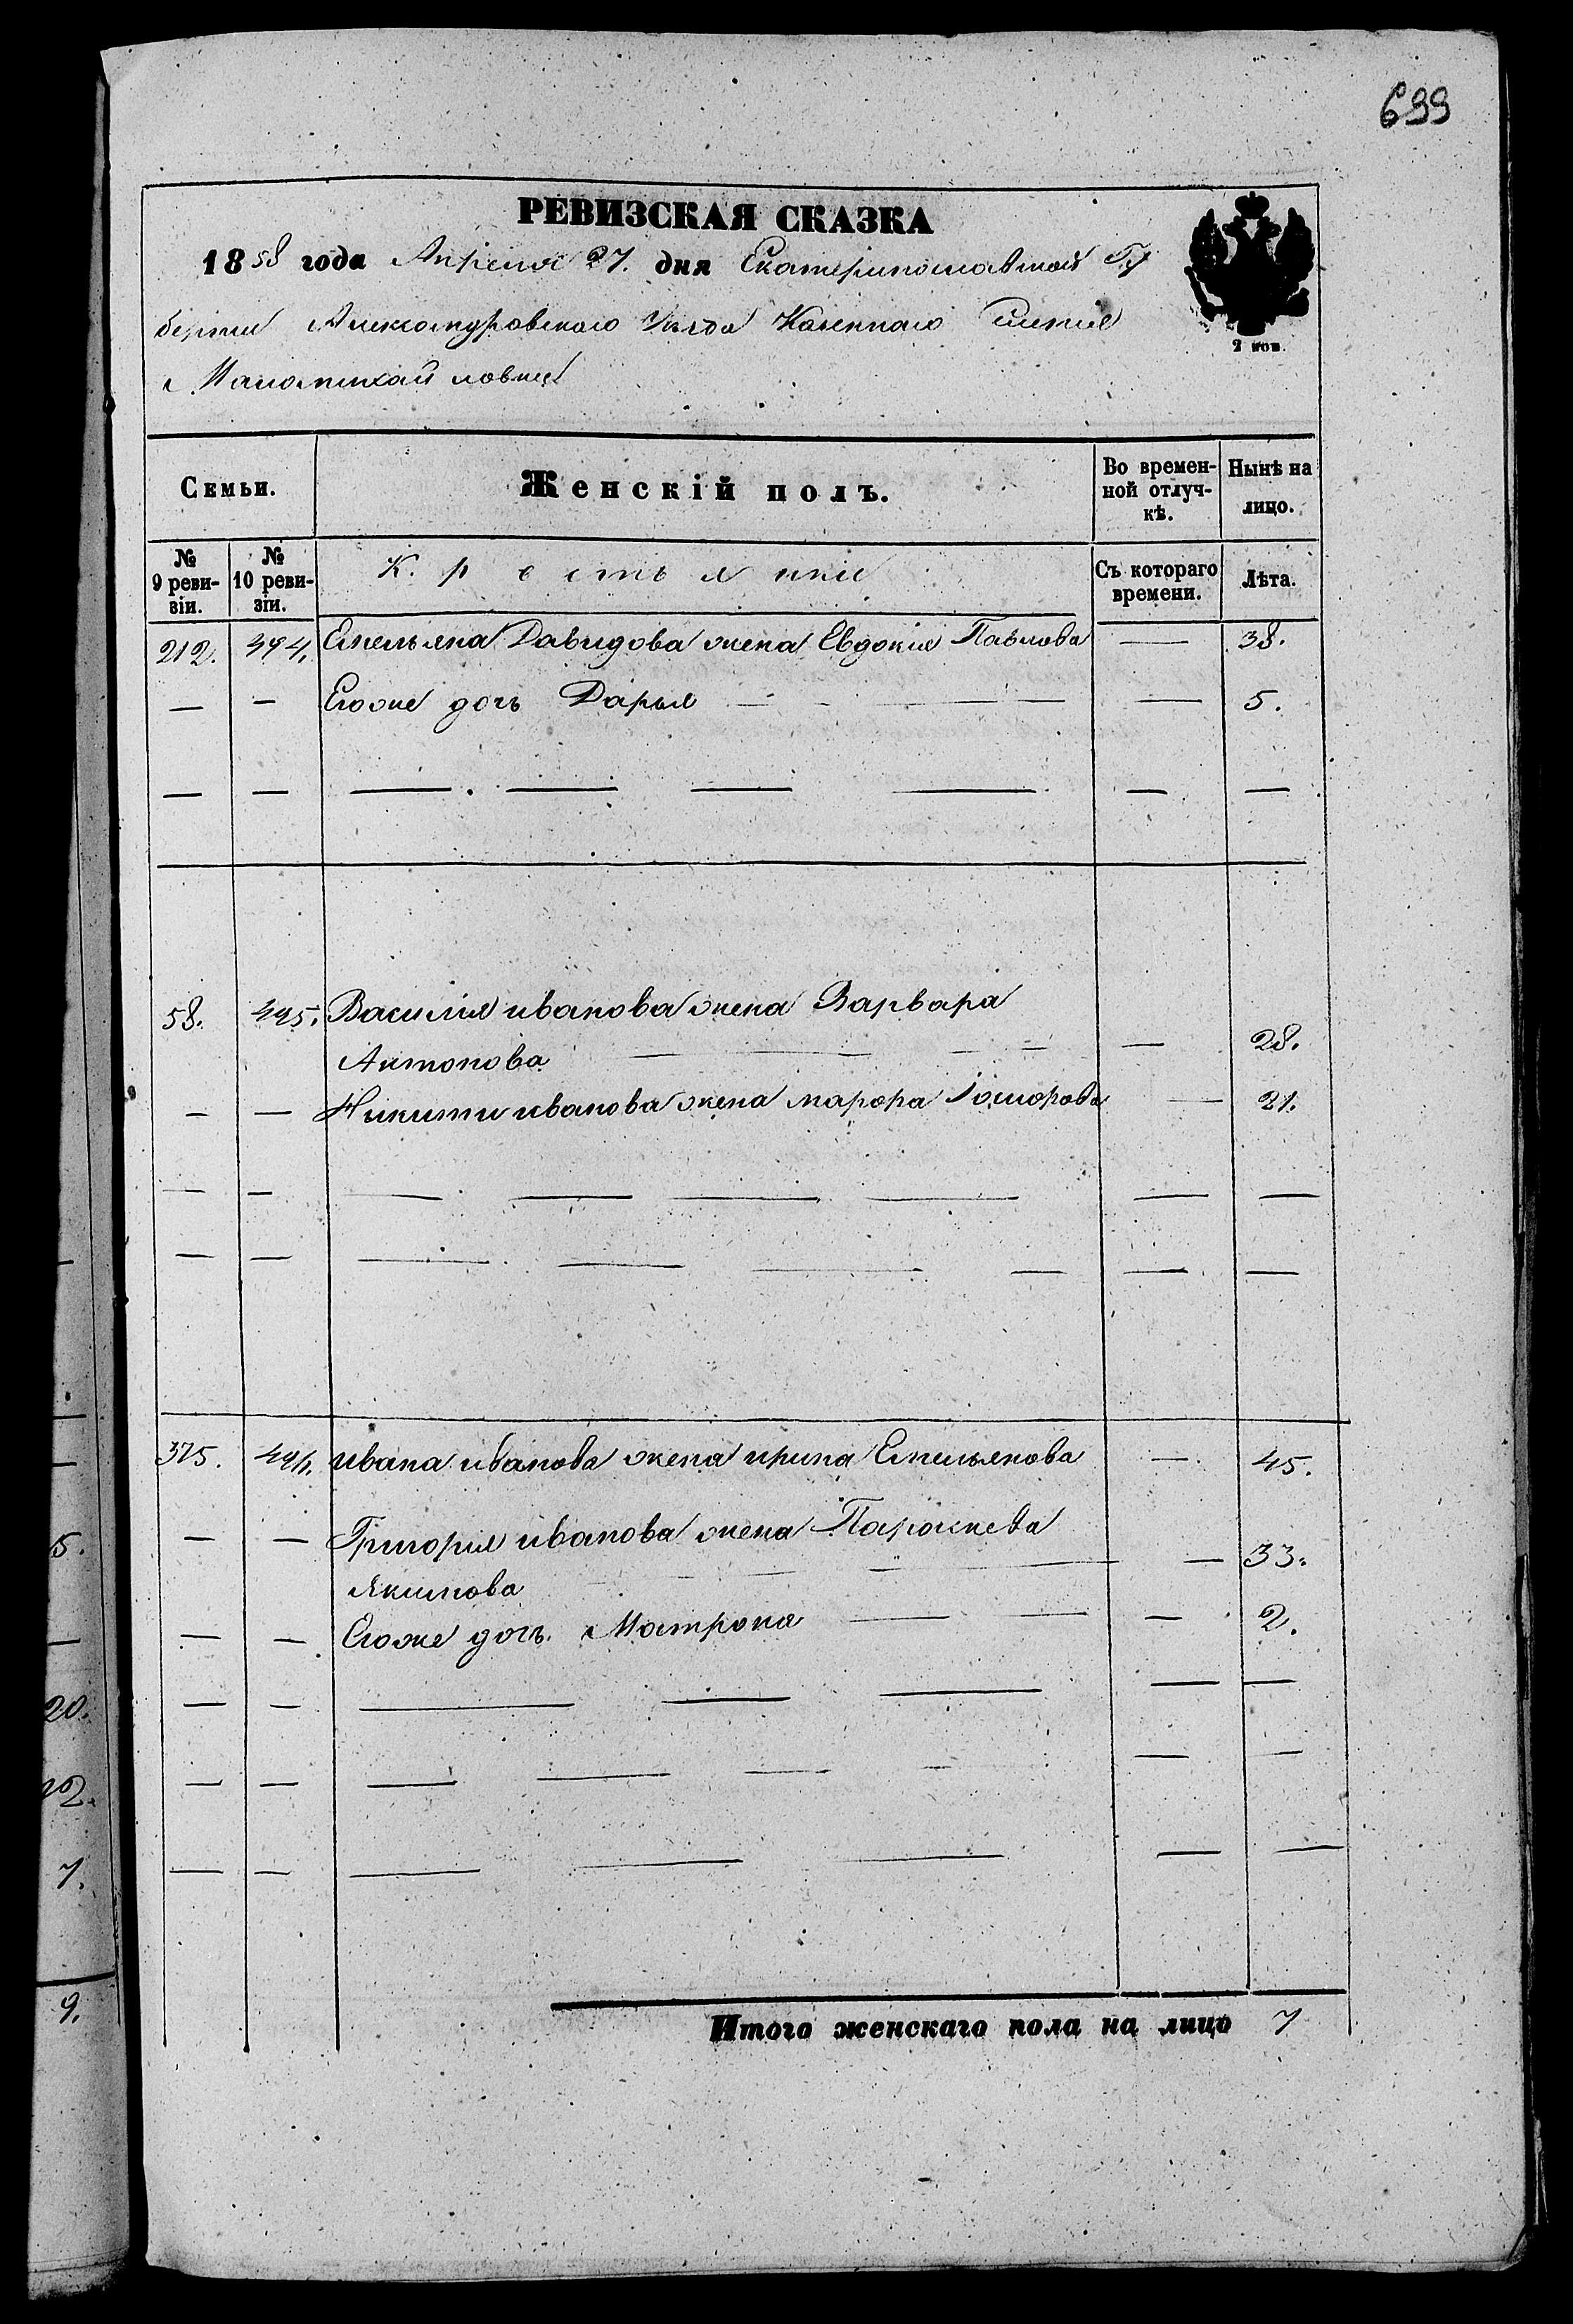 699
РЕВИЗСКАЯ СКАЗКА
1858 года Апреля 27. дня Екатеринославской Гу
берніи Александровскаго Уезда Казеннаго
Маломихайловки
2 коп.
Семьи.
Женскій полъ.
Во времен-
ной отлуч-
кѣ.
Нынѣ на
лицо.
№
9 реви-
зіи.
№
10 реви-
зіи.
Крестьяне
Съ котораго
времени.
Лѣта.
212. Емельяна Давидова жена Евдокия Павлова — 38.
— — Егоже дочь Дарья — 5.
58. Василия иванова жена Варвара
Антонова — 28.
— — Никиты иванова жена — 21.
375. ивана иванова жена ирина Емельянова — 45.
— — Григория иванова жена Параскева
Якимова — 33.
— — Егоже дочь Матрона — 2.
Итого женскаго пола на лицо 7
5.
20.
12.
7.
9.